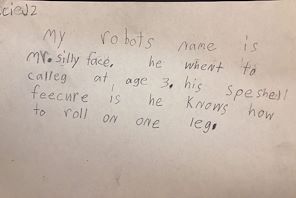 my robots name is
Mr. silly face. he whent to
calleg at age 3. his speshell
feecure is he knows how
to roll on one leg.